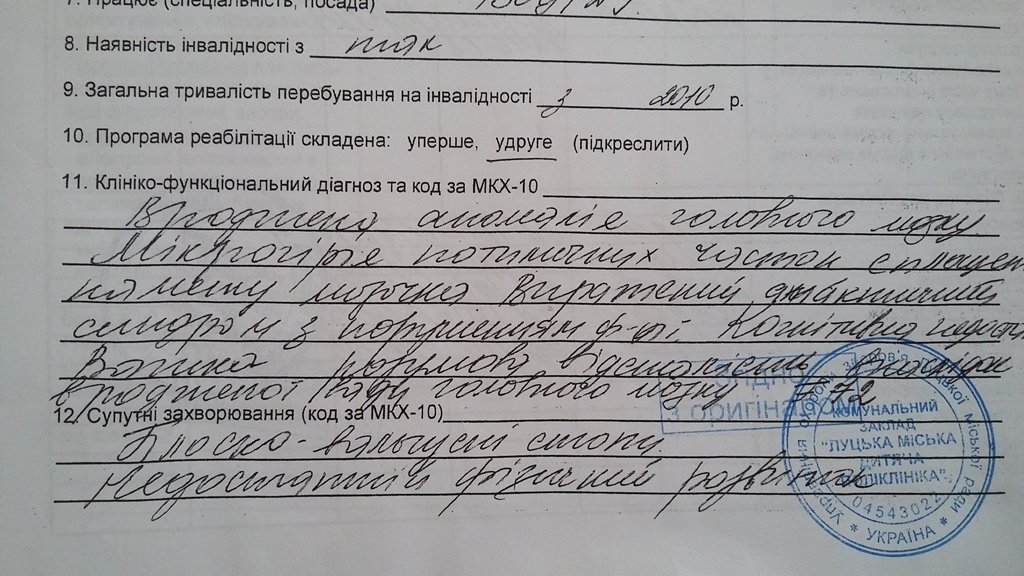 7. Працює (спеціальність, посада)
8. Наявність інвалідності з так
9. Загальна тривалість перебування на інвалідності з 2010 р.
10. Програма реабілітації складена: уперше, удруге (підкреслити)
11. Клініко-функціональний діагноз та код за МКХ-10
Вроджена аномалія головного мозку
Мікрогірія потиличних часток с
намету мозочка Виражений атактичний
синдром з порушенням ф-ії.
Важка розумова відсталість внаслідок
вродженої вади головного мозку F 72
12. Супутні захворювання (код за МКХ-10)
Плоско-вальгусні стопи
Недостатній фізичний розвиток
Згідно
з оригіналом
Управління охорони здоров'я Луцької міської ради * УКРАЇНА *
КОМУНАЛЬНИЙ
ЗАКЛАД
"ЛУЦЬКА МІСЬКА
ДИТЯЧА
ПОЛІКЛІНІКА"